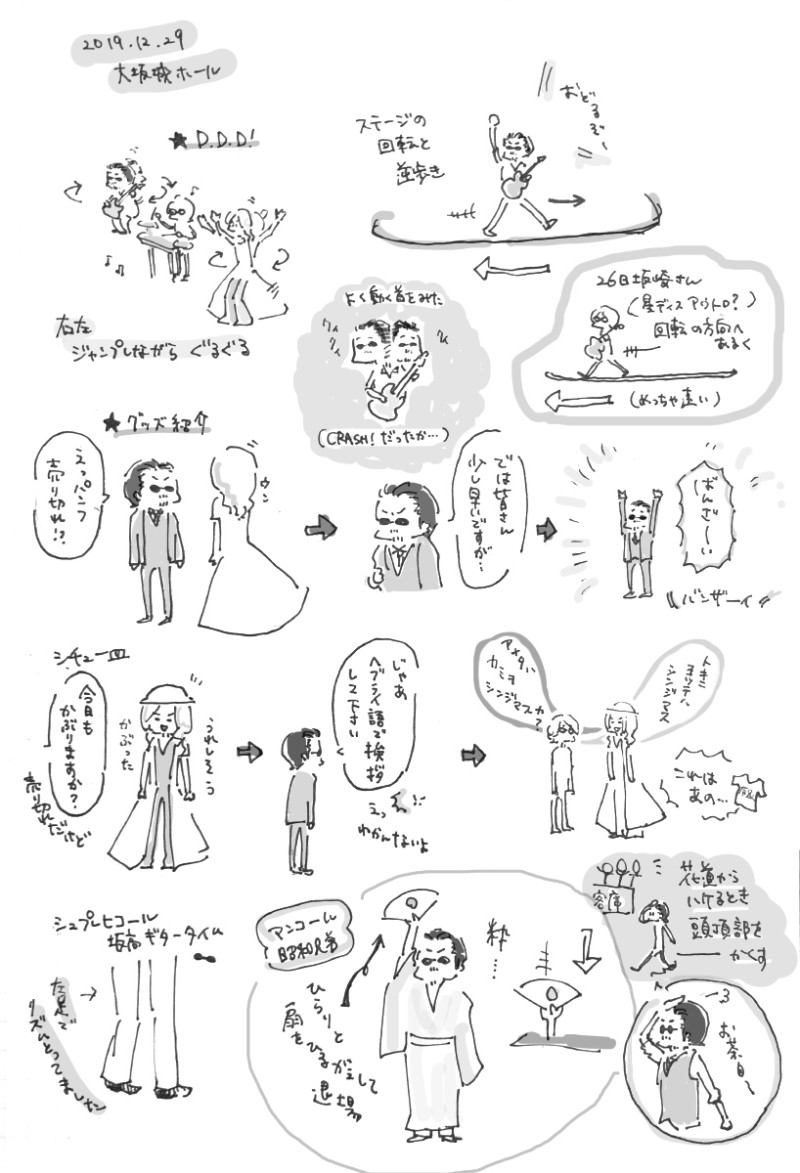 2019.12.29
大坂城ホール
★ D.D.D!
右左
ジャンプしながら ぐるぐる
ステージの
回転と
逆歩き
おどるぞ〜
よく動く首をみた
クィ
クィ
クィ
(CRASH! だったか…)
26日坂崎さん
(星ディスアウトロ?)
回転の方向へ
あるく
(めっちゃ速い)
★ グッズ紹介
えっパンフ
売り切れ!?
ウン
では皆さん
少し早いですが…
ばんざーい
バンザーイ
シチュー皿
今日も
かぶりますか?
売り切れだけど
かぶった
うれしそう
じゃあ
ヘブライ語で挨拶
して下さい
えっ
わかんないよ
アナタハ
カミヲ
シンジマスカ?
トキニ
ヨッテハ
シンジマス
これは
あの…
シュプレヒコール
坂高ギタータイム
左足で
リズムとってました
アンコール
昭和兄弟
ひらりと
扇をひるがえして
退場
粋…
花道から
ハケるとき
頭頂部を
かくす
客席
お茶目〜